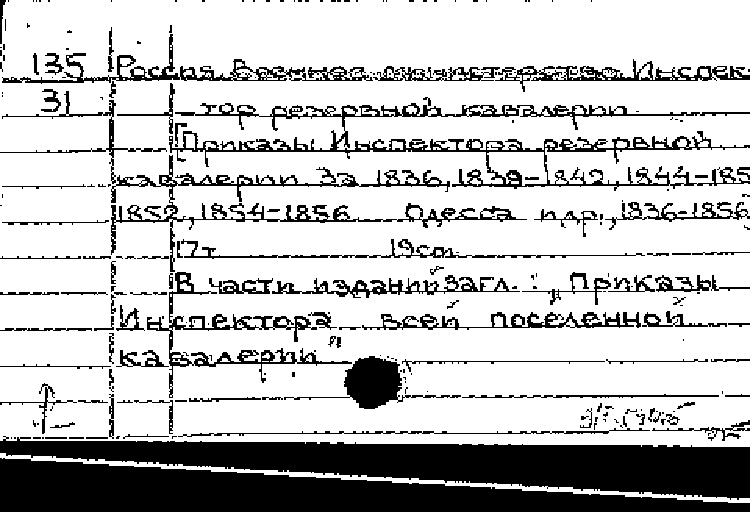 135 Россия. Военное министерство. Инспек-
31 тор резервной кавалерии.
[Приказы Инспектора резервной
кавалерии за 1836, 1839-1842, 1844-185
1852, 1854-1856. Одесса и др., 1836-1856]
17т. 19cm.
В части изданий загл.: "Приказы
Инспектора всей поселенной
кавалерии"